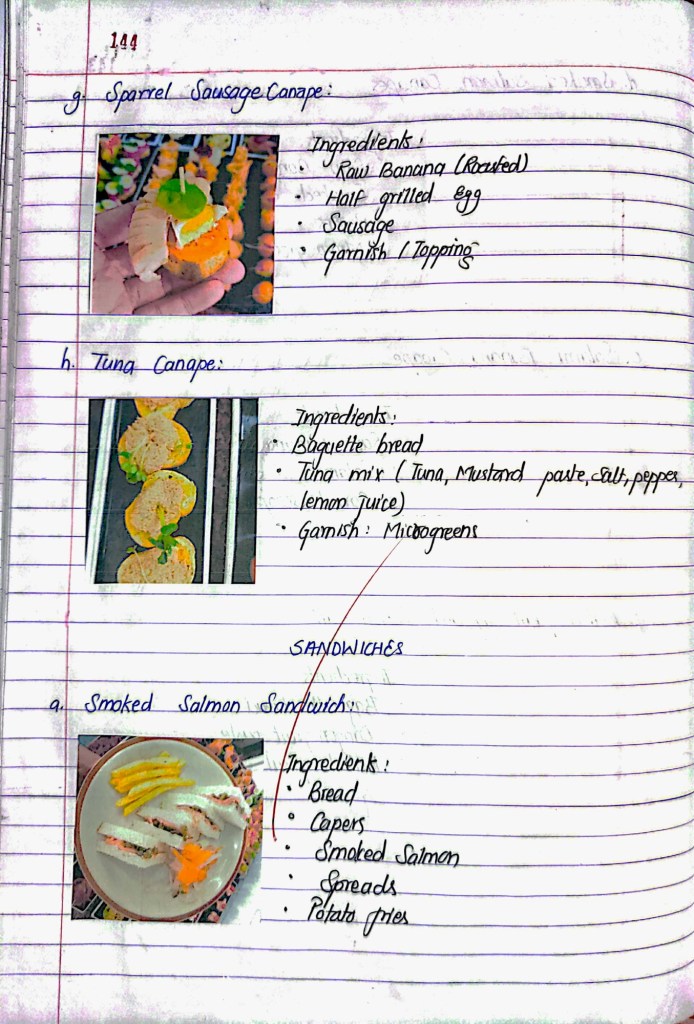 144
g. Sparrel Sausage Canape:
Ingredients:
• Raw Banana (Roasted)
• Half grilled egg
• Sausage
• Garnish / Toppings
h. Tuna Canape:
Ingredients:
• Baguette bread
• Tuna mix ( Tuna, Mustard paste, salt, pepper,
lemon juice)
• Garnish: Microgreens
SANDWICHES
a. Smoked Salmon Sandwich:
Ingredients:
• Bread
• Capers
• Smoked Salmon
• Spreads
• Potato fries